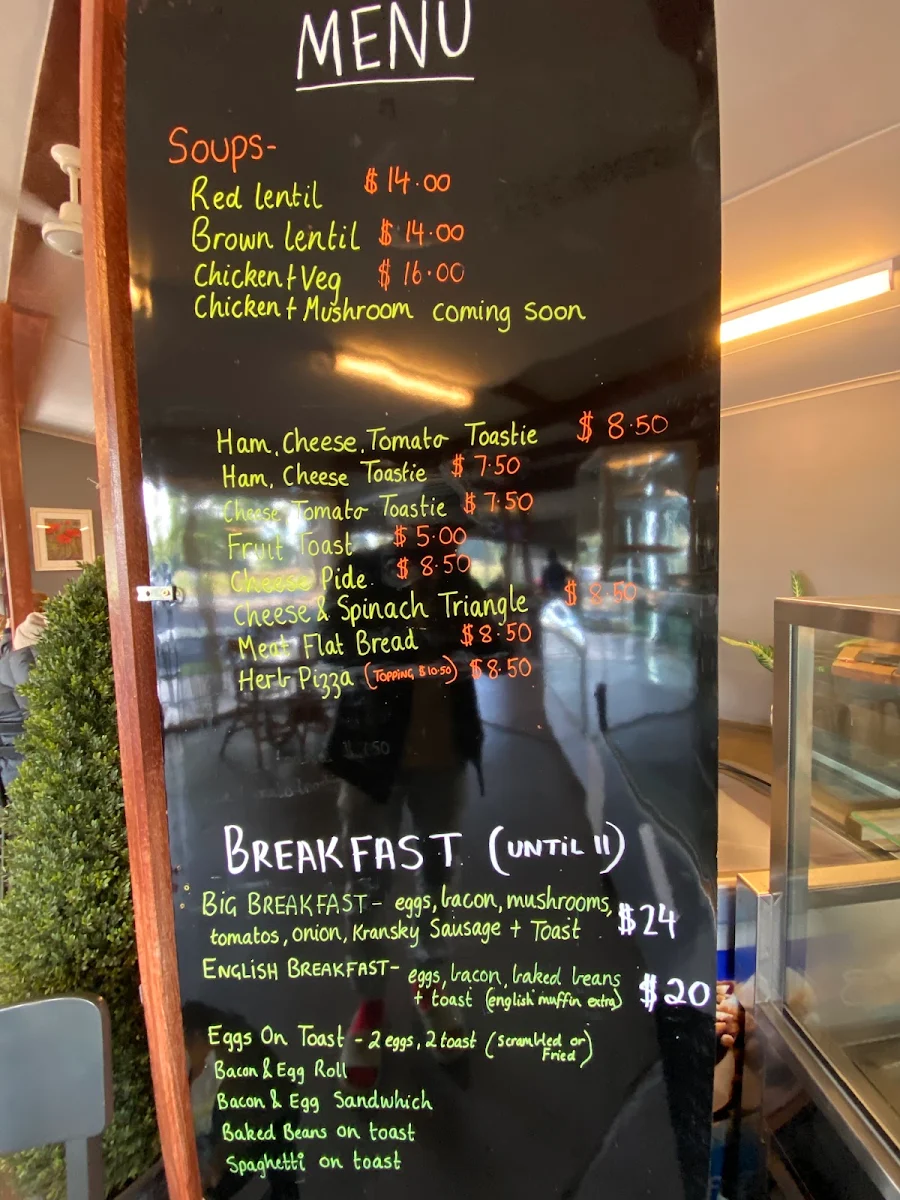 MENU
Soups-
Red lentil $14.00
Brown lentil $14.00
Chicken + Veg $16.00
Chicken + Mushroom coming soon
Ham, Cheese, Tomato Toastie $8.50
Ham, Cheese Toastie $7.50
Cheese Tomato Toastie $7.50
Fruit Toast $5.00
Cheese Pide $8.50
Cheese & Spinach Triangle $8.50
Meat Flat Bread $8.50
Herb Pizza (TOPPING $10.50) $8.50
BREAKFAST (UNTIL 11)
BIG BREAKFAST - eggs, bacon, mushrooms,
tomatos, onion, Kransky Sausage + Toast $24
ENGLISH BREAKFAST - eggs, bacon, baked beans
+ toast (english muffin extra) $20
Eggs On Toast - 2 eggs, 2 toast (scrambled or
Fried)
Bacon & Egg Roll
Bacon & Egg Sandwhich
Baked Beans on toast
Spaghetti on toast